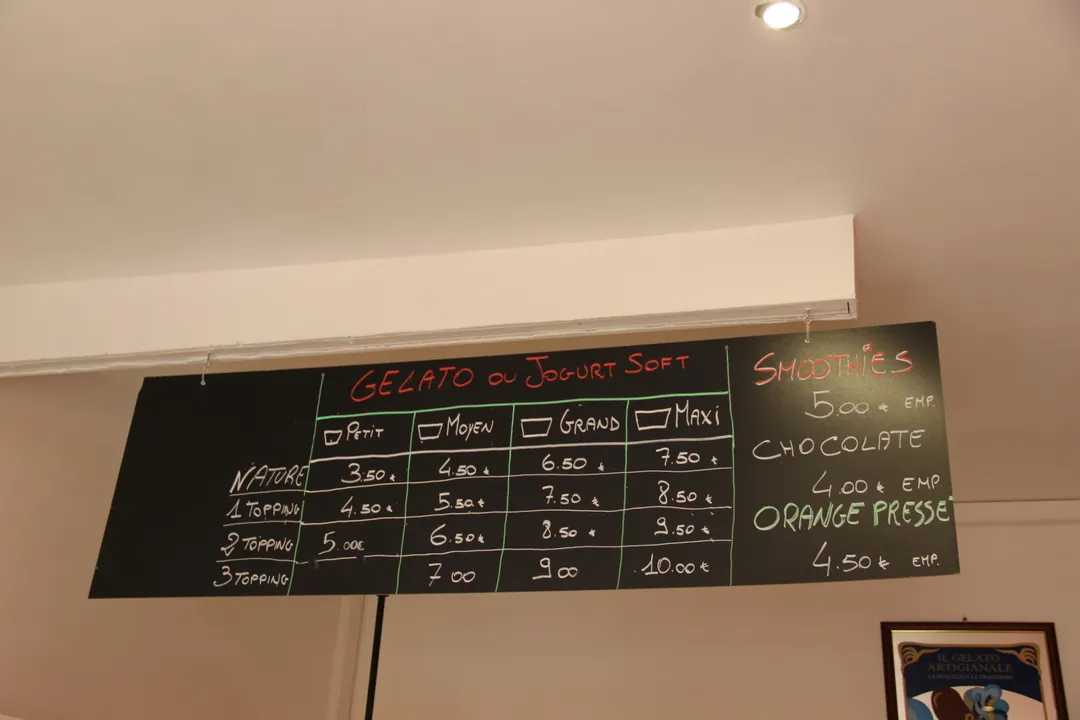 GELATO OU JOGURT SOFT
PETIT MOYEN GRAND MAXI
NATURE 3.50 € 4.50 € 6.50 € 7.50 €
1 TOPPING 4.50 € 5.50 € 7.50 € 8.50 €
2 TOPPING 5.00€ 6.50€ 8.50 € 9.50 €
3 TOPPING 7 00 9 00 10.00 €
SMOOTHIES
5.00 € EMP.
CHOCOLATE
4.00 € EMP.
ORANGE PRESSE
4.50 € EMP.
IL GELATO
ARTIGIANALE